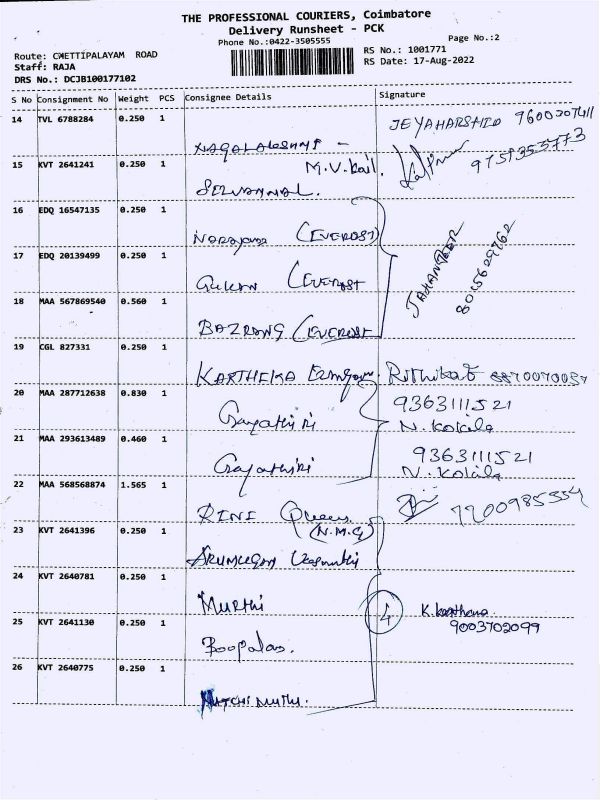 THE PROFESSIONAL COURIERS, Coimbatore
Delivery Runsheet - PCK
Phone No.:0422-3505555
Page No.:2
Route: CHETTIPALAYAM ROAD
RS No.: 1001771
Staff: RAJA
RS Date: 17-Aug-2022
DRS No.: DCJB100177102
S No Consignment No Weight PCS Consignee Details Signature
14 TVL 6788284 0.250 1
15 KVT 2641241 0.250 1 M.V.
16 EDQ 16547135 0.250 1 Narayana (EVEREST)
17 EDQ 20139499 0.250 1 (EVEREST
18 MAA 567869540 0.560 1 BAZRANG (EVEREST
19 CGL 827331 0.250 1 KARTHEIKA 8870070057
20 MAA 287712638 0.830 1 Gayathiri 9363111521
N. Kokila
21 MAA 293613489 0.460 1 Gayathiri 9363111521
N. Kokila
22 MAA 568568874 1.565 1 RINI Queen 7200985554
(N.M.G)
23 KVT 2641396 0.250 1 ARUMUGAM
24 KVT 2640781 0.250 1 MURTHI
4
25 KVT 2641130 0.250 1 Boopalan. 9003702099
26 KVT 2640775 0.250 1